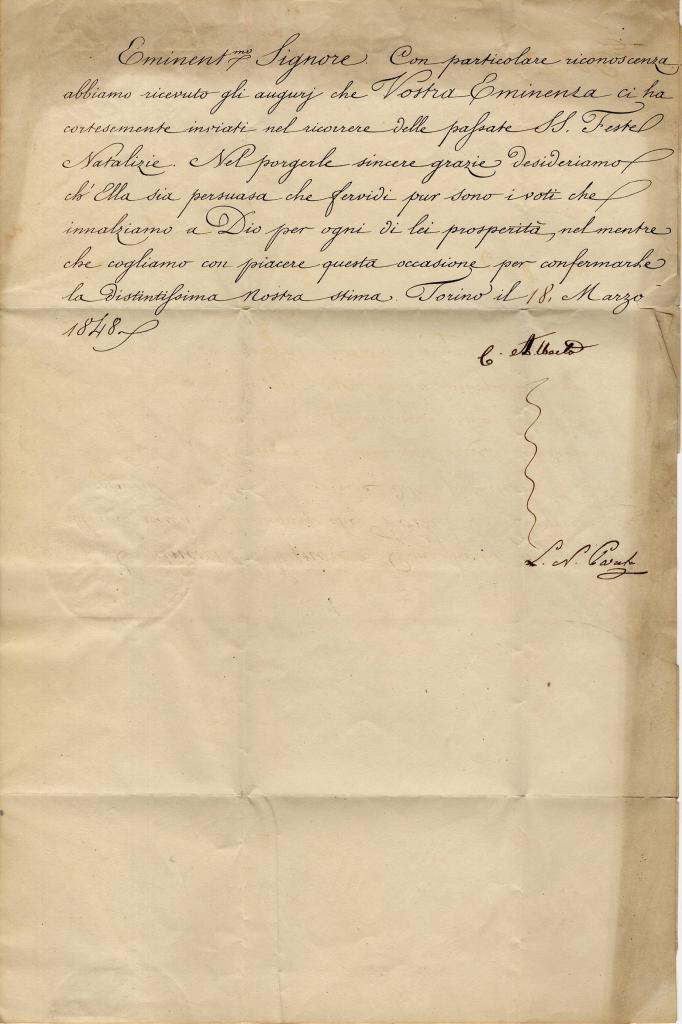 Eminentmo Signore. Con particolare riconoscenza
abbiamo ricevuto gli augurj che Vostra Eminenza ci ha
cortesemente inviati nel ricorrere delle passate SS. Feste
Natalizie. Nel porgerle sincere grazie desideriamo
ch'Ella sia persuasa che fervidi pur sono i voti che
innalziamo a Dio per ogni di lei prosperità, nel mentre
che cogliamo con piacere questa occasione per confermarle
la distintissima nostra stima. Torino il 18. Marzo
1848.
C. Alberto
L. N. Pareto